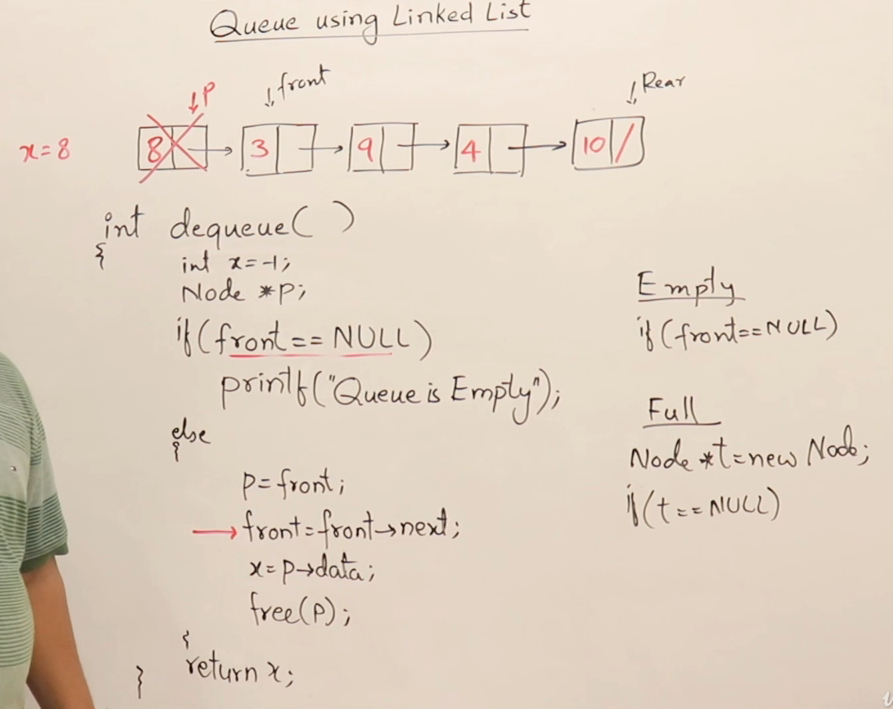 Queue using Linked List
P
front
Rear
x=8
8
3
9
4
10 /
int dequeue( )
{
int x=-1;
Node *p;
if(front==NULL)
printf("Queue is Empty");
else
{
P=front;
front=front→next;
x=P→data;
free(P);
{
return x;
}
Empty
if(front==NULL)
Full
Node *t=new Node;
if(t==NULL)